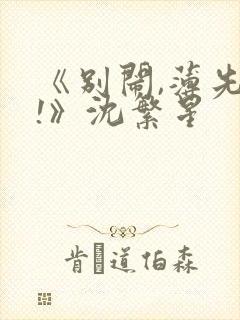 《别鬧,薄先
!》沈繁星
肯道伯森